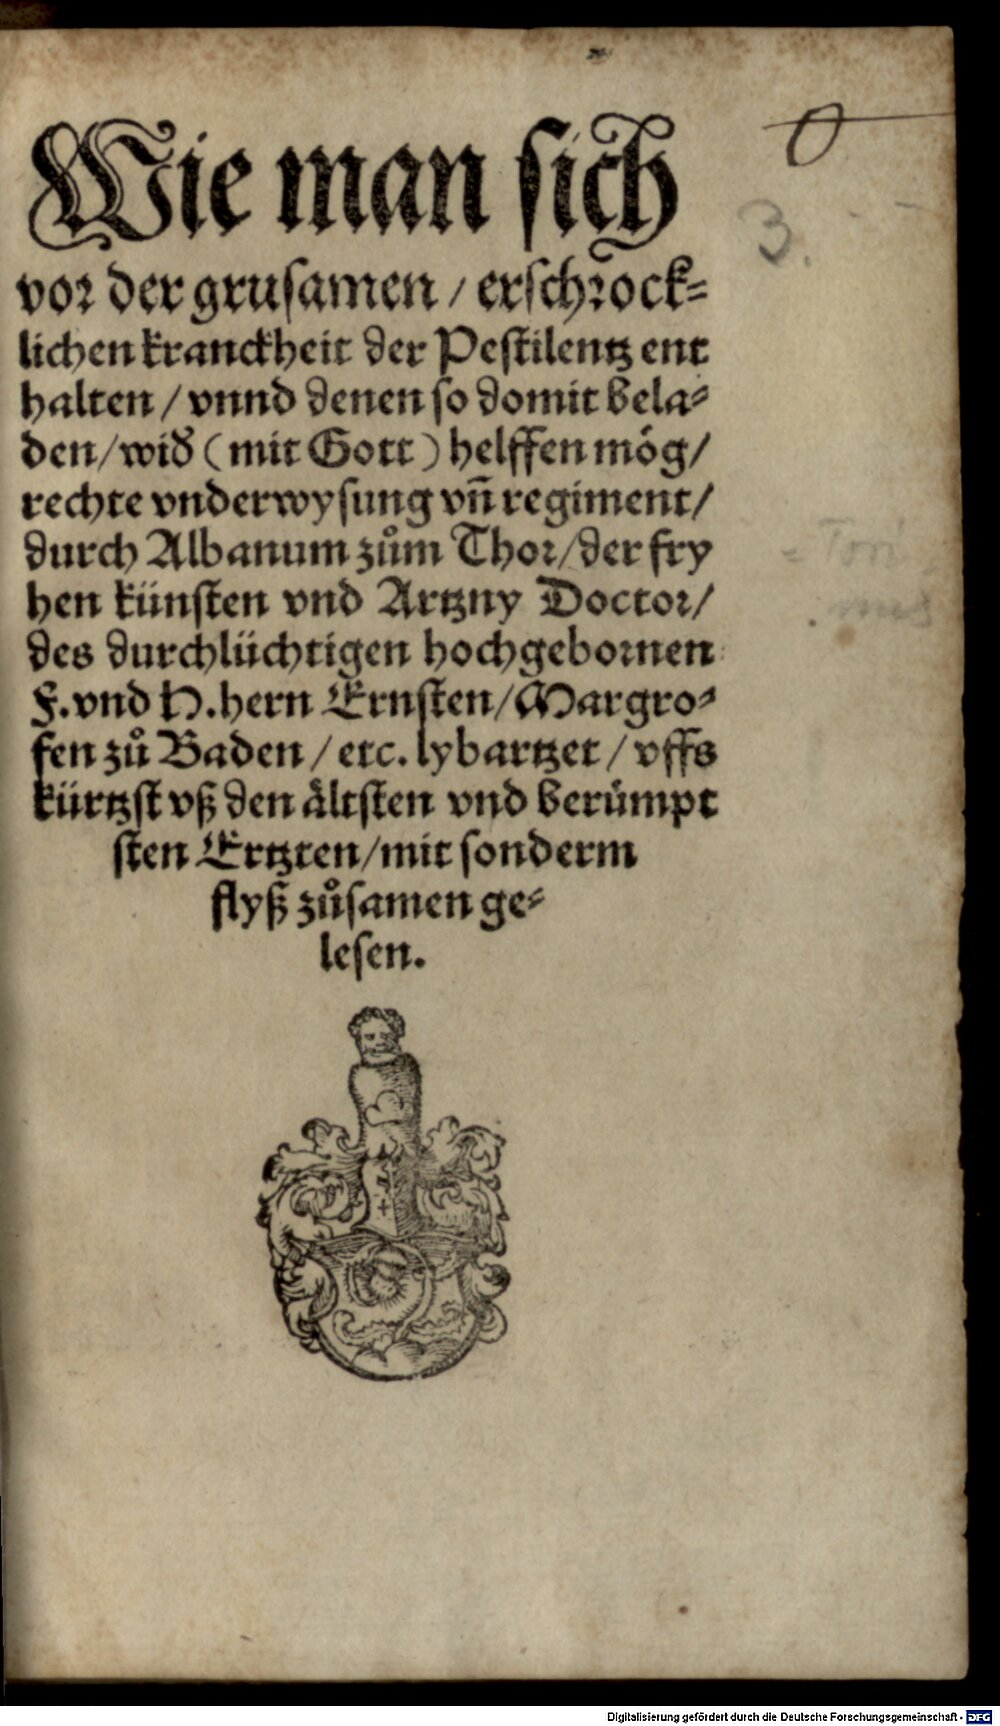 Wie man sich
vor der grusamen / erschrock⸗
lichen kranckheit der Pestilentz ent
halten / vnnd denen so domit bela⸗
den / wid̕ (mit Gott) helffen mög /
rechte vnderwysung vñ regiment /
durch Albanum zům Thor / der fry
hen künsten vnd Artzny Doctor /
des durchlüchtigen hochgebornen
F. vnd H. hern Ernsten / Margro⸗
fen zů Baden / etc. lybartzet / vffs
kürtzst vß den ältsten vnd berümpt
sten Ertzten / mit sonderm
flyß zůsamen ge⸗
lesen.
3.
Digitalisierung gefördert durch die Deutsche Forschungsgemeinschaft - DFG